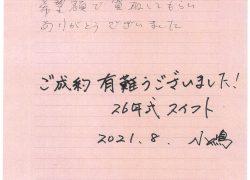 希望額で買取してもらい
ありがとうございました
ご成約 有難うございました!
26年式 スイフト
2021.8. 小嶋